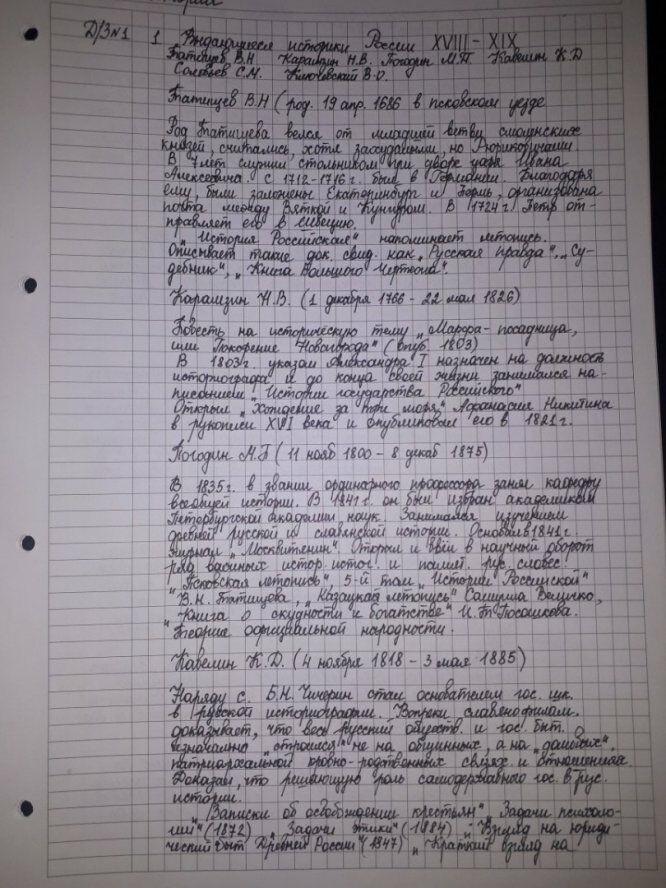 Д/З №1 1 Выдающиеся историки России XVIII - XIX
Татищев В.Н Карамзин Н.В. Погодин М.П. Кавелин К.Д
Соловьев С.М. Ключевский В.О.
Татищев В.Н (род. 19 апр. 1686 в псковском уезде
Род Татищева велся от младшей ветви смоленских
князей, считались, хотя захудалыми, но Рюриковичами.
В 7 лет служил стольником при дворе царя Ивана
Алексеевича. С 1712-1716 г. был в Германии. Благодаря
ему, были заложены Екатеринбург и Пермь, организована
почта между Вяткой и Кунгуром. В 1724 г. Петр от-
правляет его в Швецию.
„История Российская" напоминает летопись.
Описывает такие док. свид. как „Русская правда", „Су-
дебник", „Книга Большого Чертежа".
Карамзин Н.В. (1 декабря 1766 - 22 мая 1826)
Повесть на историческую тему „Марфа-посадница,
или Покорение Новагорода" (опуб. 1803)
В 1803 г. указом Александра I назначен на должность
историографа и до конца своей жизни занимался на-
писанием „Истории государства Российского"
Открыл „Хождение за три моря" Афанасия Никитина
в рукописи XVI века и опубликовал его в 1821 г.
Погодин М.П (11 нояб 1800 - 8 декаб 1875)
В 1835 г. в звании ординарного профессора занял кафедру
всеобщей истории. В 1841 г. он был избран академиком
Петербургской академии наук. Занимался изучением
древней русской и славянской истории. Основал в 1841 г.
журнал „Москвитянин". Открыл и ввёл в научный оборот
ряд важных истор. источ. и памят. рус. словес.
„Псковская летопись", 5-й том „Истории Российской"
В.Н. Татищева, „Казацкая летопись" Самуила Величко,
„Книга о скудности и богатстве" И.Т. Посошкова.
Теория официальной народности.
Кавелин К.Д. (4 ноября 1818 - 3 мая 1885)
Наряду с Б.Н. Чичерин стал основателем гос. шк.
в русской историографии. Вопреки славянофилам
доказывает, что весь русский обществ. и гос. быт.
изначально „строился" не на общинных, а на
патриархальной кровно-родственных связях и отношениях.
Доказал, что решающую роль самодержавного гос. в рус.
истории.
„Записки об освобождении крестьян" „Задачи психоло-
гии" (1872) „Задачи этики" (1884) „Взгляд на юриди-
ческий быт Древней России" (1847) „Краткий взгляд на